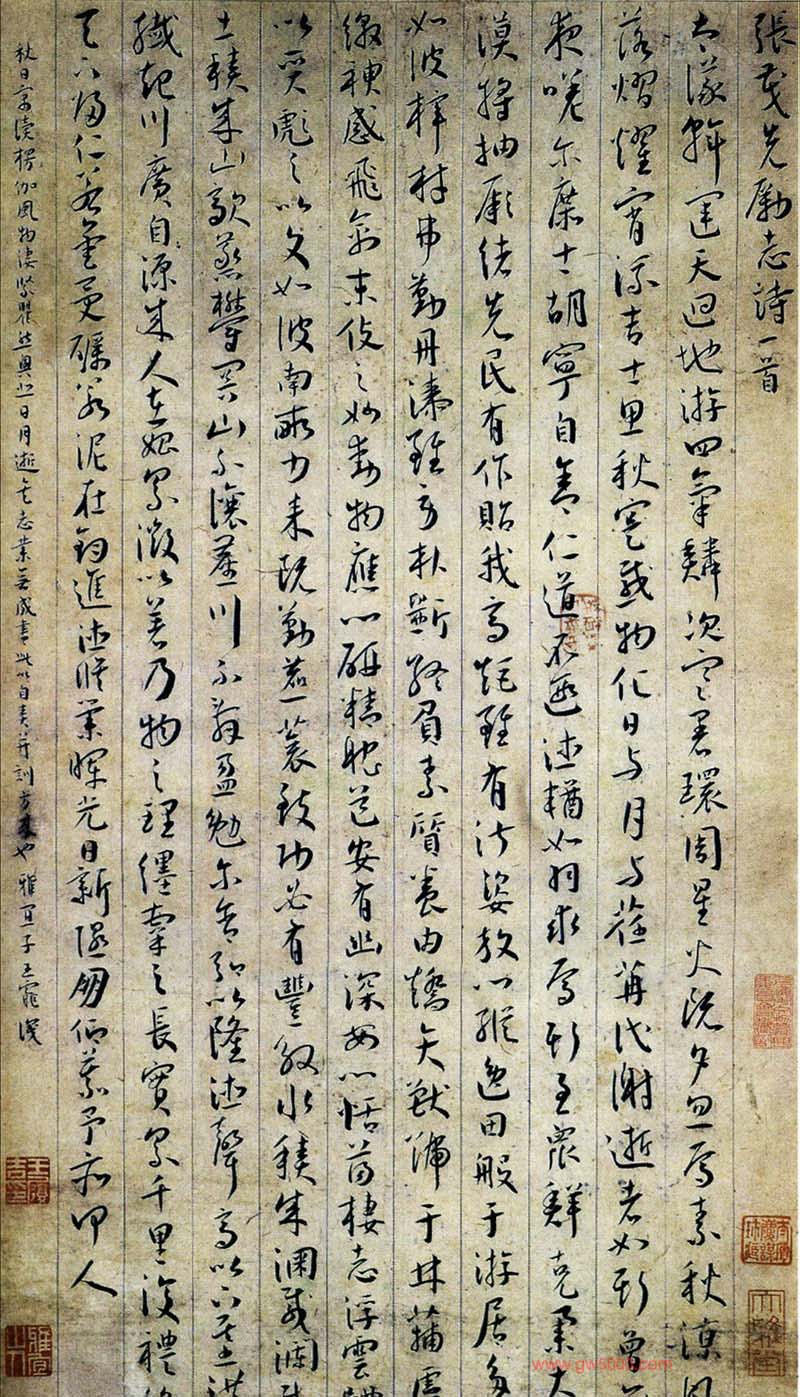 張茂先勵志詩一首
大儀斡運天迴地游四氣鱗次寒暑環周星火既夕忽焉素秋涼風
落熠燿宵流吉士思秋寔感物化日與月與荏苒代謝逝者如斯曾無
夜嗟尔庶士胡寧自舍仁道不遐德輶如羽求焉斯至眾鮮克舉大
漠將抽厥緒先民有作貽我高矩雖有淑姿放心縱逸田般于游居多
如彼梓材弗勤丹漆雖勞朴斲終負素質養由矯矢獸號于林蒱盧
繳神感飛禽末伎之妙動物應心研精耽道安有幽深安心恬蕩棲志浮雲體
以質彪之以文如彼南畝力耒既勤藨蓘致功必有豐殷水積成淵載瀾載
土積成山歊蒸鬱冥山不讓塵川不辭盈勉尔含弘以隆德聲高以下基洪
纖起川廣自源成人在始累微以著乃物之理纆牽之長實累千里復禮終
天下歸仁若金受礪若泥在鈞進德修業暉光日新隰朋仰慕予亦何人
秋日讀楞伽風物淒緊瞿然興悲日月逝矣志業無成書此以自責并訓方來也雅宜子王寵識
王履吉印
雅宜山人
大雅堂